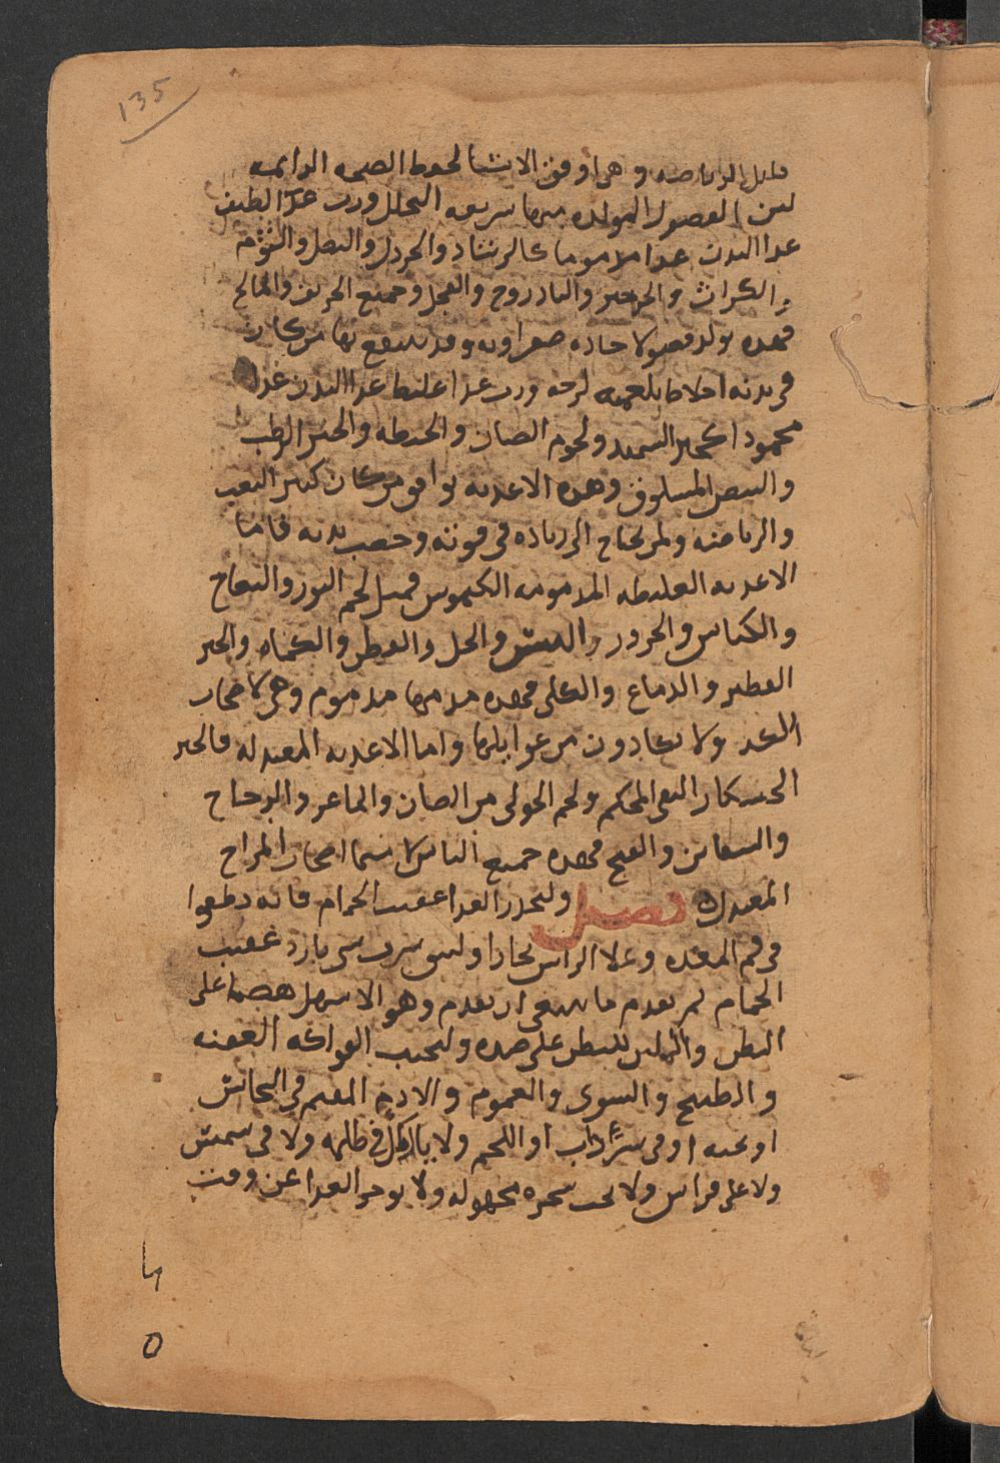 135
قليل الرياضه وهي اوفق الاشيا لحفظ الصحه الدايمه
لين الفضول المولده منها سريعه التحلل ورب غذا لطيف
غذا البدن غذا مذموما كالرشاد والخردل والبصل والثوم
والكراث والجرجير والبادروج والفجل وجميع الحريف والمالح
فهذه تولد فضولا حاده صفراويه وقد ينتفع بها من كان
في بدنه اخلاط بلغميه لزجه ورب غذا غليظ غذا البدن غذا
محمودا كخبز السميد ولحوم الضان والحنطه والجبن الرطب
والبيض المسلوق وهذه الاغذيه توافق من كان كثير التعب
والرياضه ولمن يحتاج الى زياده في قوته وخصب بدنه فاما
الاغذيه الغليظه المذمومه الكيموس فمثل لحم الثور والنعاج
والكباش والجزور والتيس والخل والفطر والكماه والخبز
الفطير والدماغ والكلى فهذه مذمومه وهي لاصحاب
الكد ولا يكادون من غوايلها واما الاغذيه المعتدله فالخبز
الخشكار النقي المحكم ولحم الحولي من الضان والماعز والدجاج
والسفانن والقبج فهذه جميع الناس لا سيما اصحاب المزاج
المعتدل فصل وليحذر الغدا عقيب الحمام فانه يطفوا
في فم المعده وعلا الراس بخارا وليس شرب شي بارد عقيب
الحمام لم يقدم ما ينبغي ان يقدم وهو الاسهل هضما على
البطن والملين للبطن على ضده وليجتنب الفواكه العفنه
والبطيخ والشوي والغموم والادم المقيم في النحاس
او عنه او في سرداب او اللحم ولا ياكل في ظلمه ولا في شمس
ولا على فراش ولا تحت شجره مجهوله ولا يوخر الغدا عن وقت